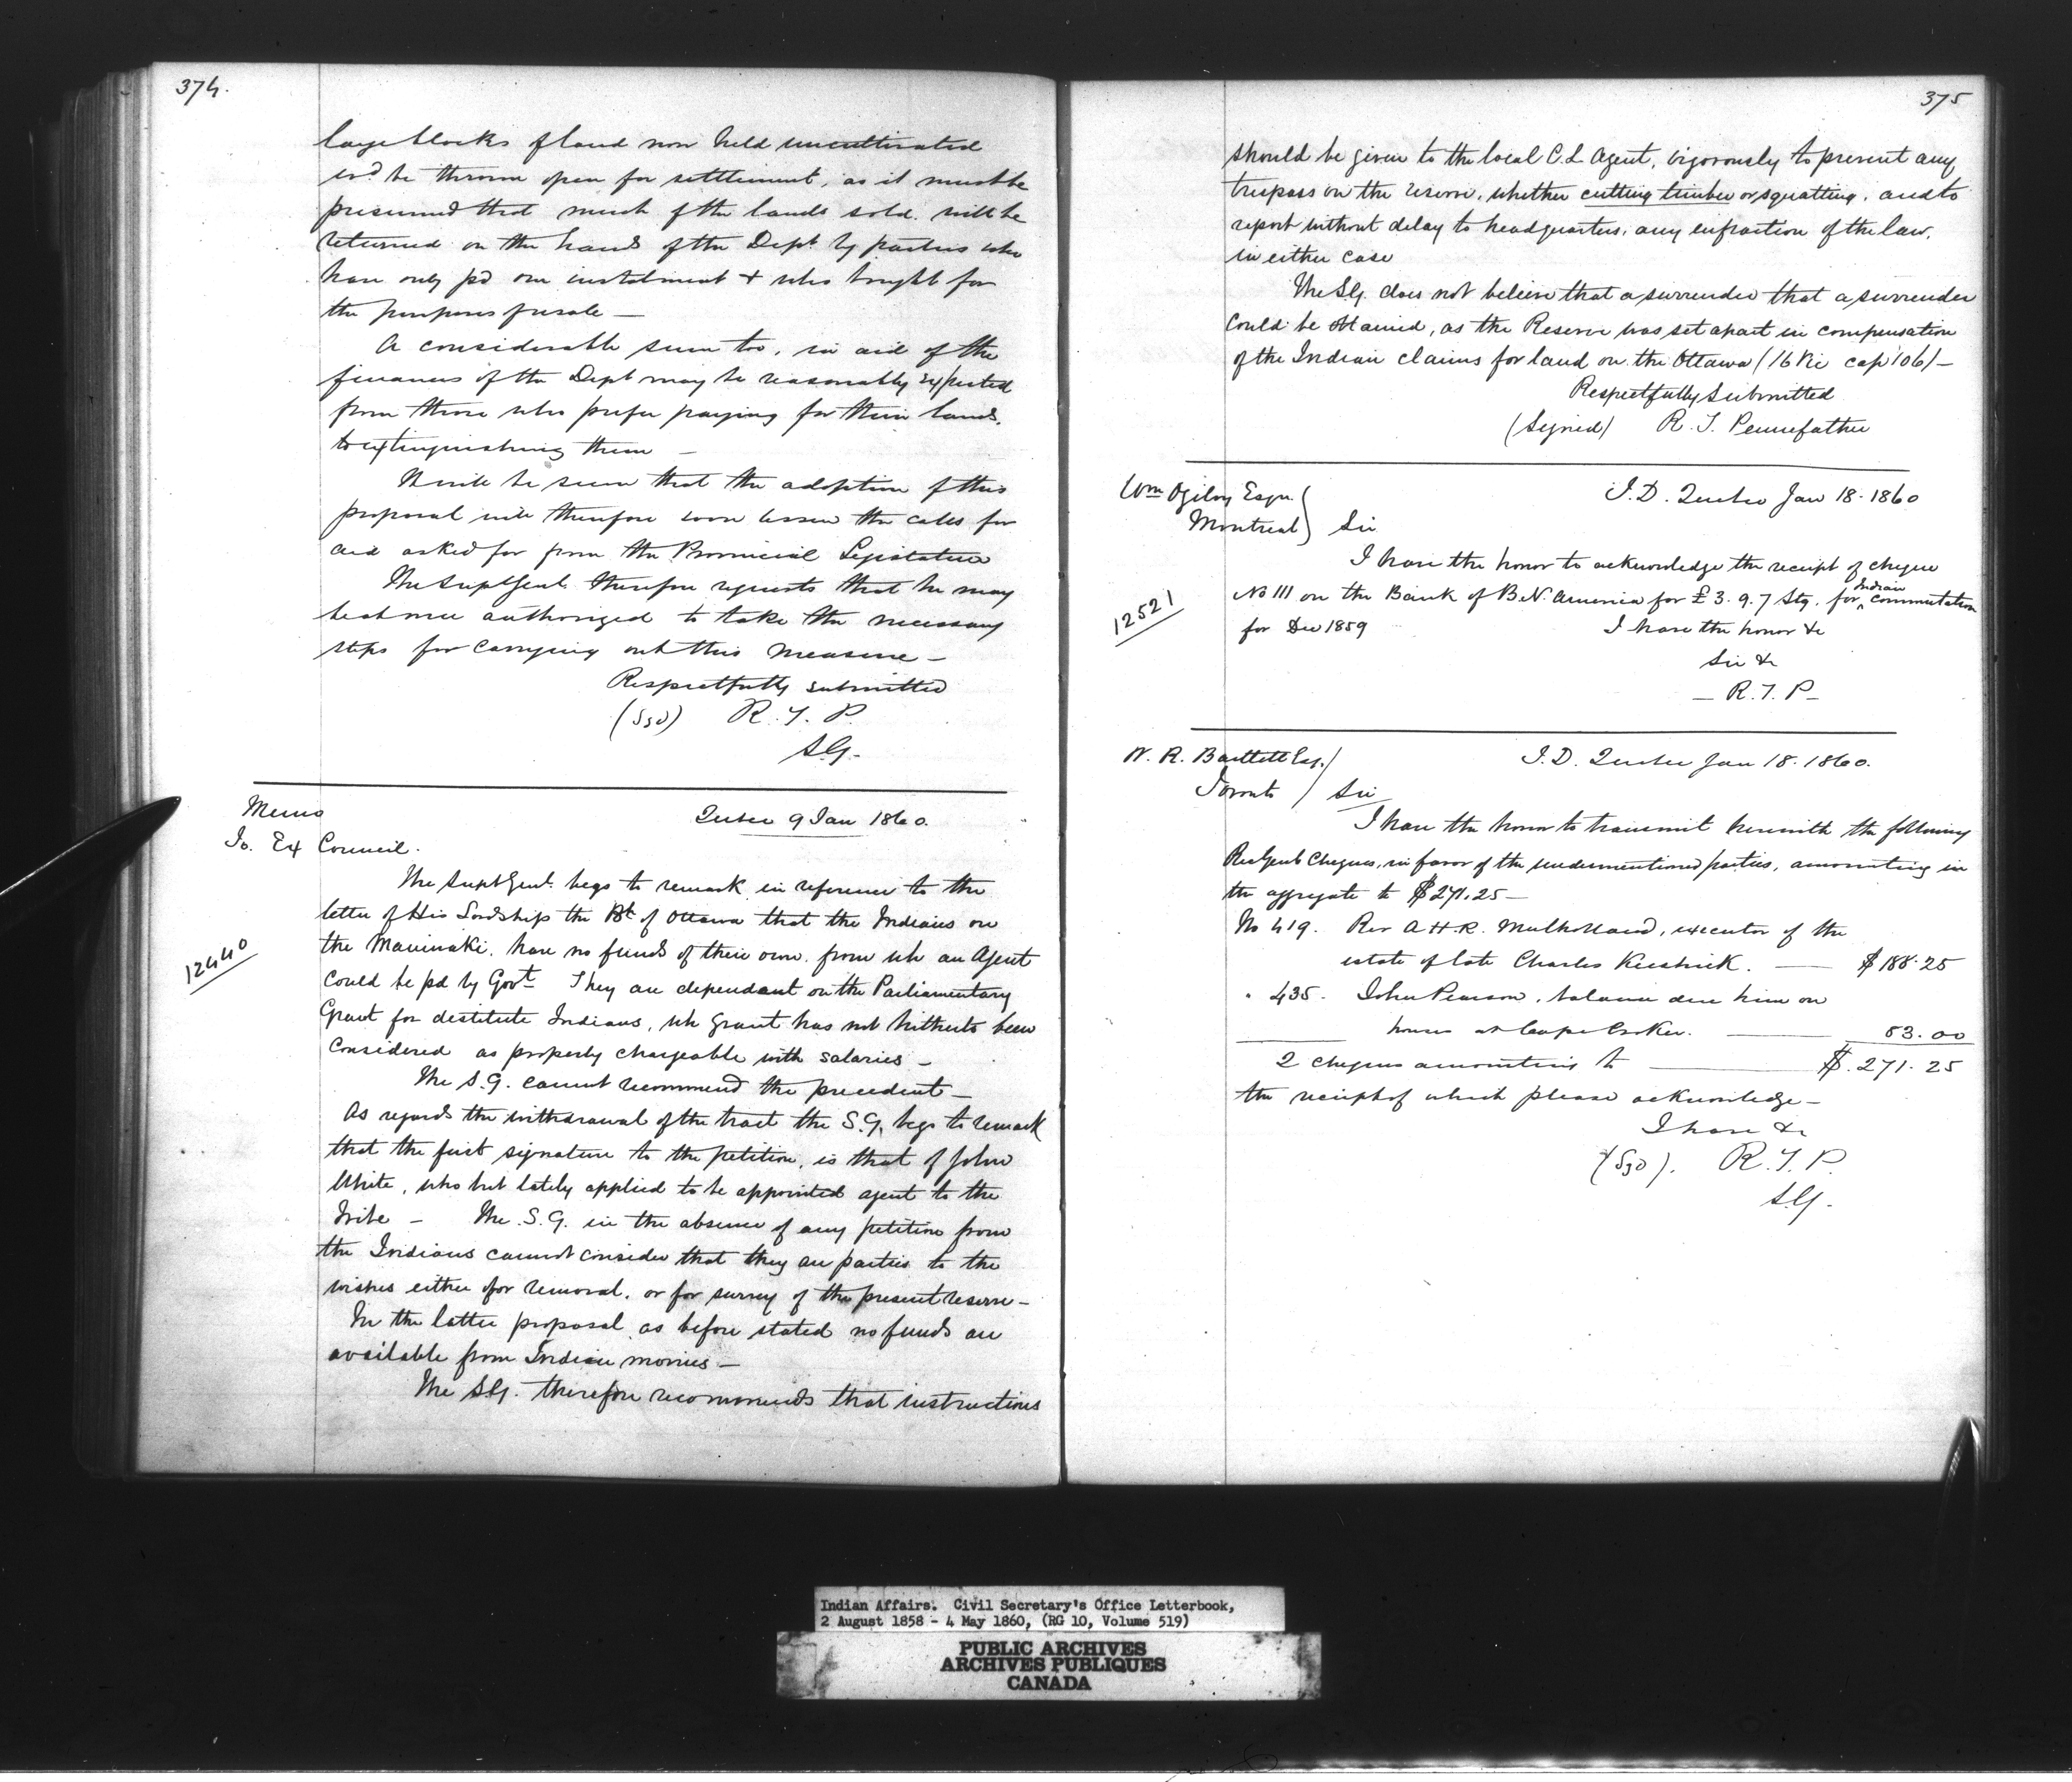 374.
large blocks of land now held uncultivated
wd be thrown open for settlement, as it must be
presumed that much of the lands sold will be
returned on the hands of the Dept by parties who
have only pd one instalment & who bought for
the purposes of resale —
A considerable sum too, in aid of the
finances of the Dept may be reasonably expected
from those who prefer paying for their lands,
to extinguishing them —
It will be seen that the adoption of this
proposal will therefore soon lessen the calls for
aid asked for from the Provincial Legislature
The Supt Genl. therefore requests that he may
be at once authorized to take the necessary
steps for carrying out this measure —
Respectfully submitted
(Sgd) R. T. P.
S.G.
Memo
To. Ex Council.
Quebec 9 Jan 1860.
12440
The Supt Genl. begs to remark in reference to the
letter of His Lordship the Bp of Ottawa that the Indians on
the Maniwaki. have no funds of their own. from wh an Agent
could be pd by Govt They are dependant on the Parliamentary
Grant for destitute Indians, wh grant has not hitherto been
considered as properly chargeable with salaries —
The S.G. cannot recommend the precedent —
As regards the withdrawal of the tract the S.G. begs to remark
that the first signature to the petition, is that of John
White, who but lately applied to be appointed agent to the
Tribe — The S.G. in the absence of any petition from
the Indians cannot consider that they are parties to the
wishes either for removal, or for survey of the present reserve —
In the latter proposal as before stated no funds are
available from Indian monies —
The S.G. therefore recommends that instructions
375
should be given to the local C.L Agent, vigorously to prevent any
trespass on the reserve, whether cutting timber or squatting, and to
report without delay to headquarters, any infraction of the law,
in either case
The S.G. does not believe that a surrender that a surrender
could be obtained, as the Reserve was set apart in compensation
of the Indian claims for land on the Ottawa (16 Vic cap 106) —
Respectfully Submitted
(Signed) R. T. Pennefather
Wm Ogilvy Esqr.
Montreal
I.D. Quebec Jan 18. 1860
Sir
I have the honor to acknowledge the receipt of cheque
12521
No 111 on the Bank of B.N. America for £3.9.7 Stg. for Indian commutation
for Dec 1859
I have the honor &c
Sir &c
— R.T.P —
W. R. Bartlett Esq. /
Toronto /
I.D. Quebec Jan 18. 1860.
Sir
I have the honor to transmit herewith the following
Rec Genl Cheques, in favor of the undermentioned parties, amounting in
the aggregate to $271.25 —
No 419. Rev A H R. Mulholland, executor of the
estate of late Charles Keeshick. — $188.25
" 435. John Pearson, balance due him on
houses at Cape Croker. — 83.00
2 cheques amounting to — $.271.25
the receipt of which please acknowledge —
I have &c
(Sgd). R.T.P.
S.G.
Indian Affairs. Civil Secretary's Office Letterbook,
2 August 1858 - 4 May 1860, (RG 10, Volume 519)
PUBLIC ARCHIVES
ARCHIVES PUBLIQUES
CANADA